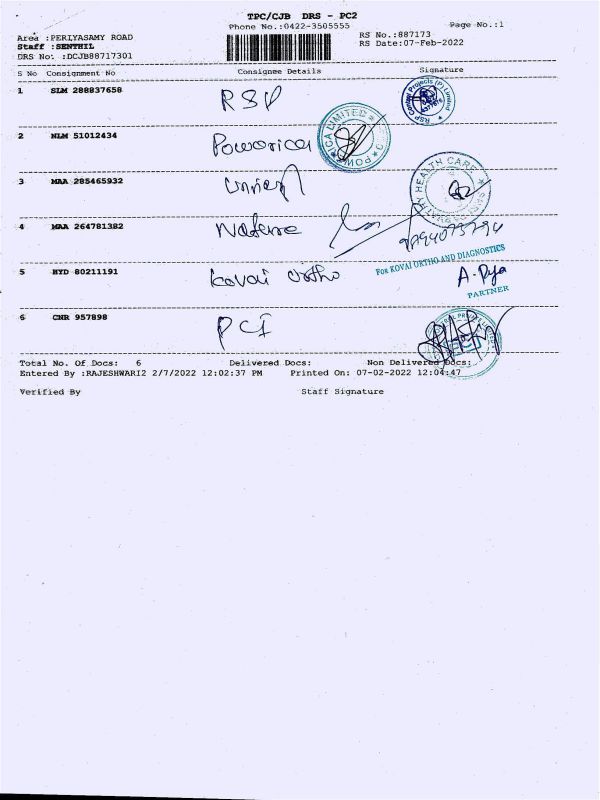 TPC/CJB DRS - PC2
Phone No.:0422-3505555
Page No.:1
Area :PERIYASAMY ROAD
RS No.:887173
Staff :SENTHIL
RS Date:07-Feb-2022
DRS No. :DCJB88717301
S No Consignment No Consignee Details Signature
1 SLM 288837658 RSP
RSP Projects (P) Limited
2 NLM 51012434 Powerica
POWERICA LIMITED
3 MAA 285465932
HEALTH CARE
4 MAA 264781382 Nature
5 HYD 80211191 Kovai ortho
For KOVAI ORTHO AND DIAGNOSTICS
A. Pya
PARTNER
6 CNR 957898 PCI
Total No. Of Docs: 6 Delivered Docs: Non Delivered Docs:
Entered By :RAJESHWARI2 2/7/2022 12:02:37 PM Printed On: 07-02-2022 12:04:47
Verified By Staff Signature